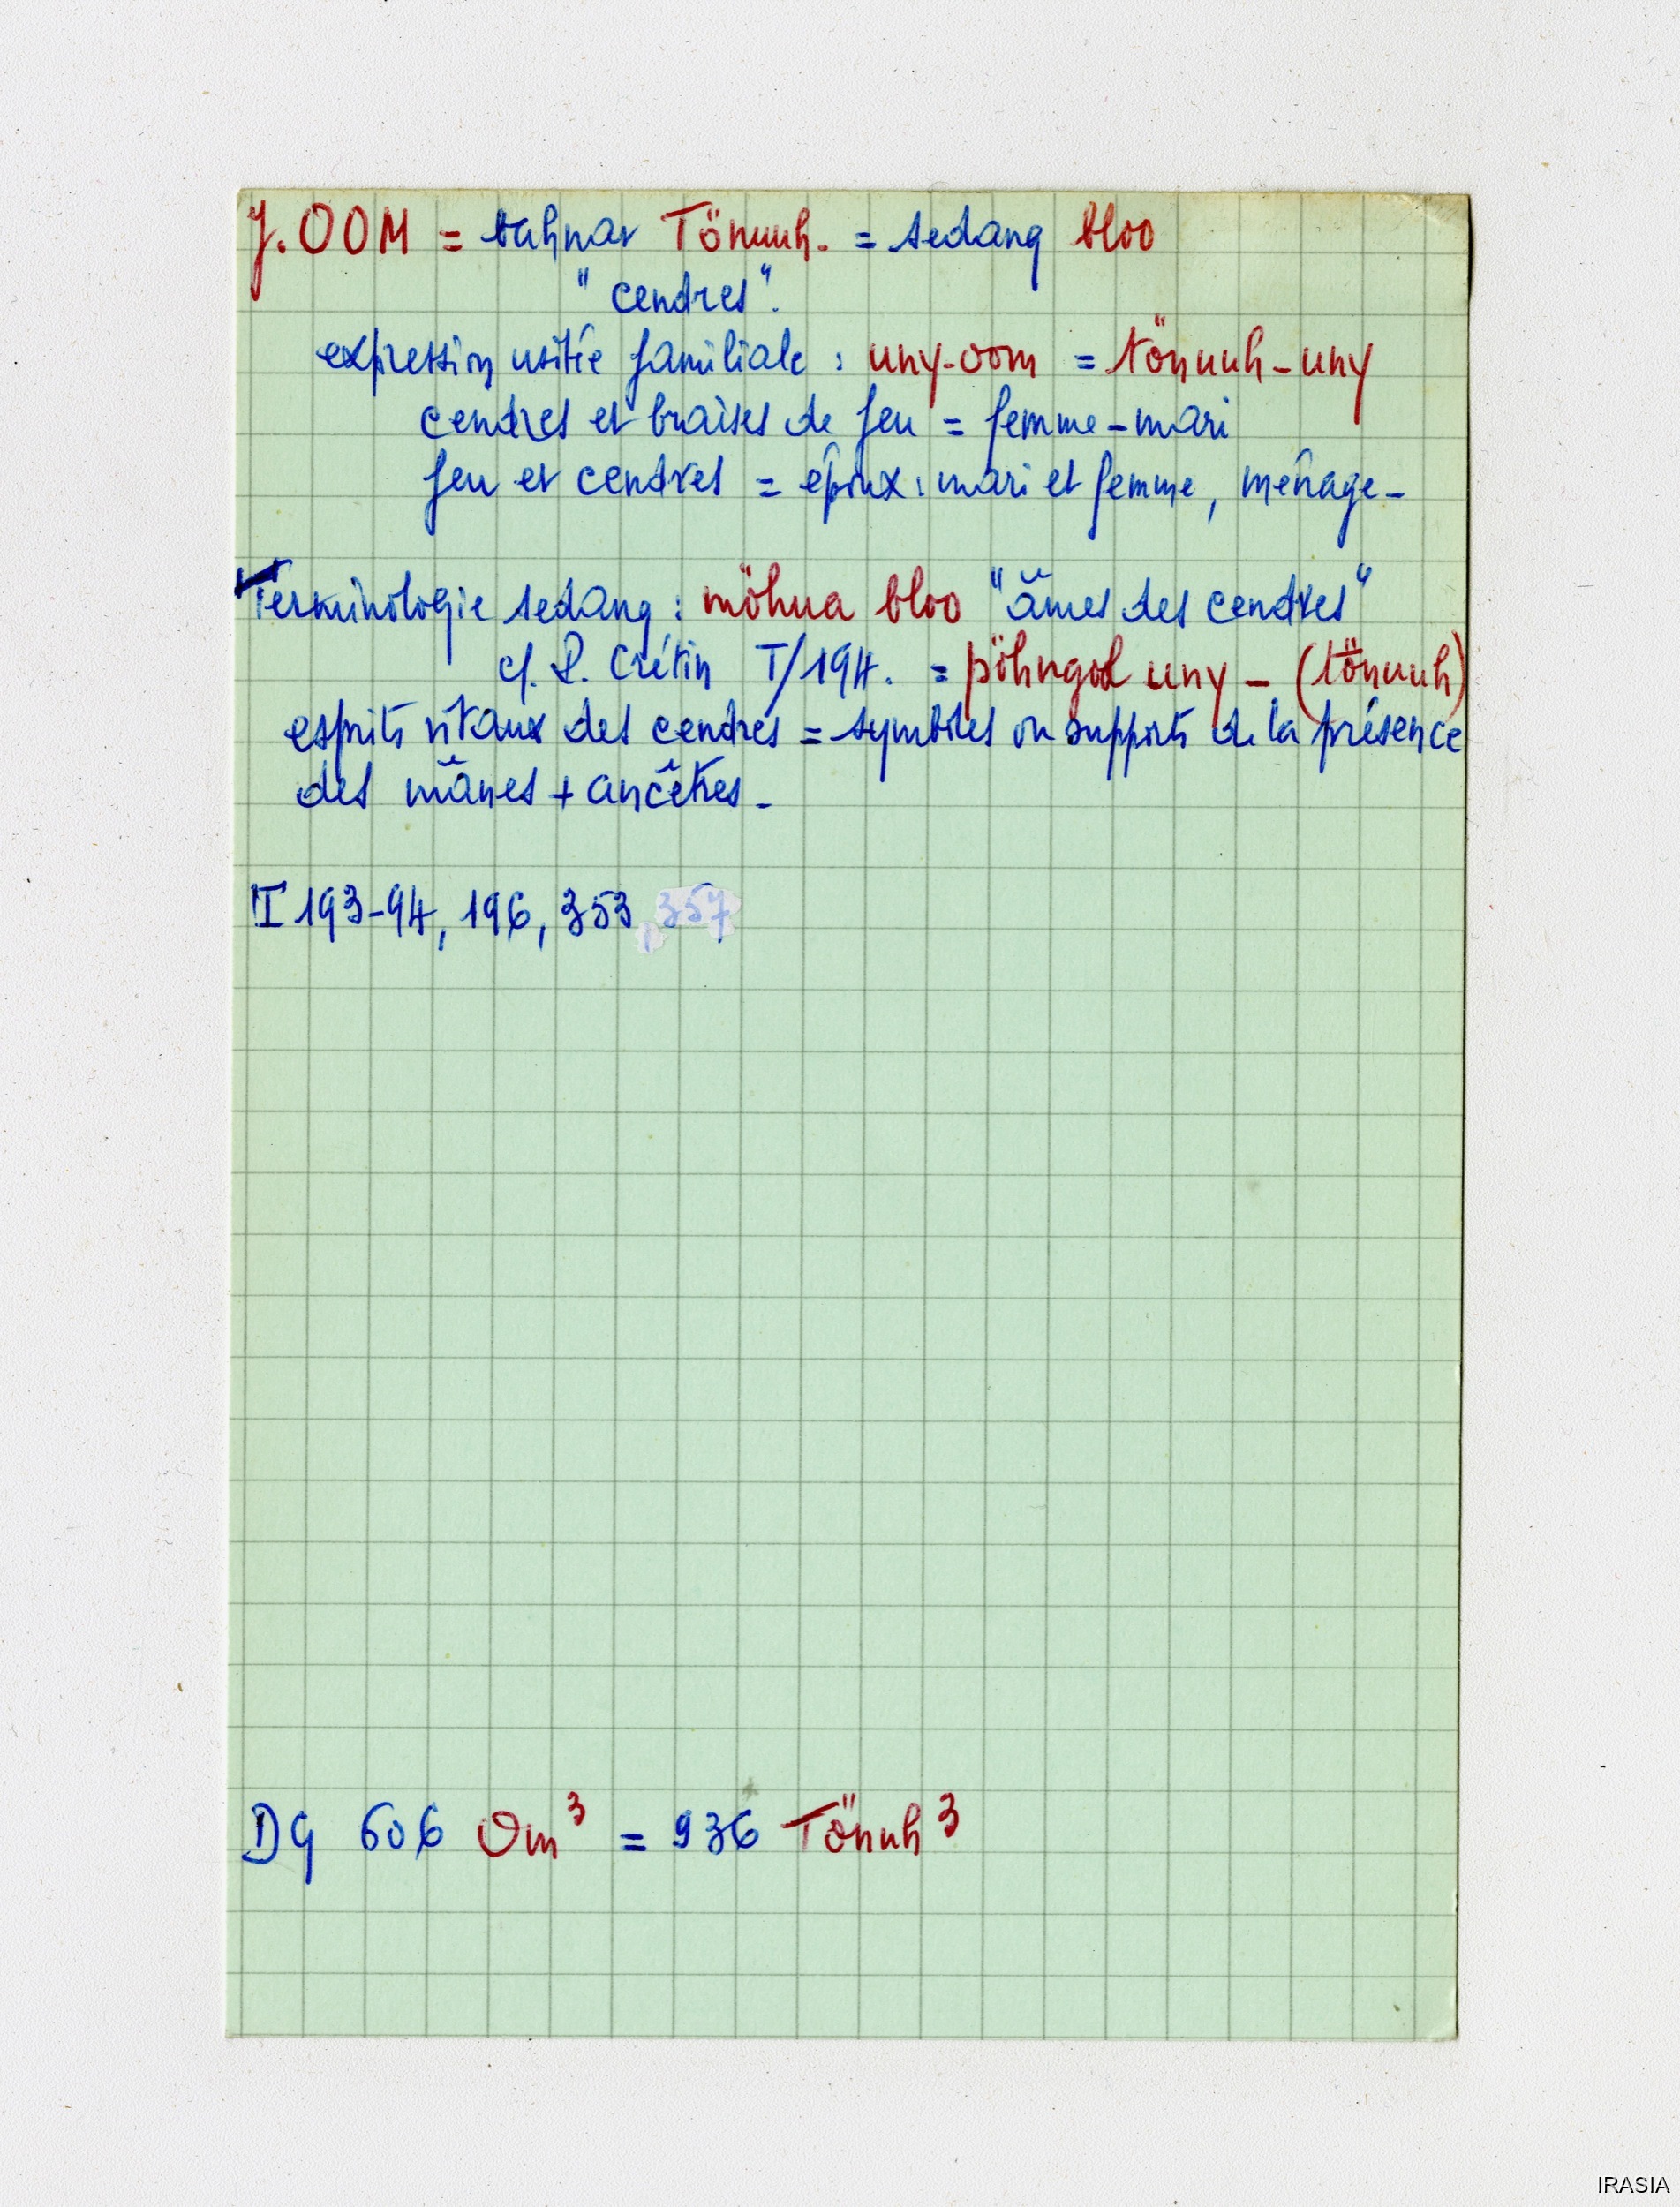 J. OOM = bahnar Tönuuh. = sedang bloo
"cendres".
expression usitée familiale : uny-oom = tönuuh-uny
cendres et braises de feu = femme-mari
feu et cendres = époux : mari et femme, ménage-
Terminologie sedang : möhua bloo "âmes des cendres"
cf. P. Crétin I/194. = pöhngol uny - (tönuuh)
esprits vitaux des cendres = symboles ou supports de la présence
des mânes + ancêtres -
I 193-94, 196, 353, 357
DG 606 Om³ = 936 Tönuh³
IRASIA